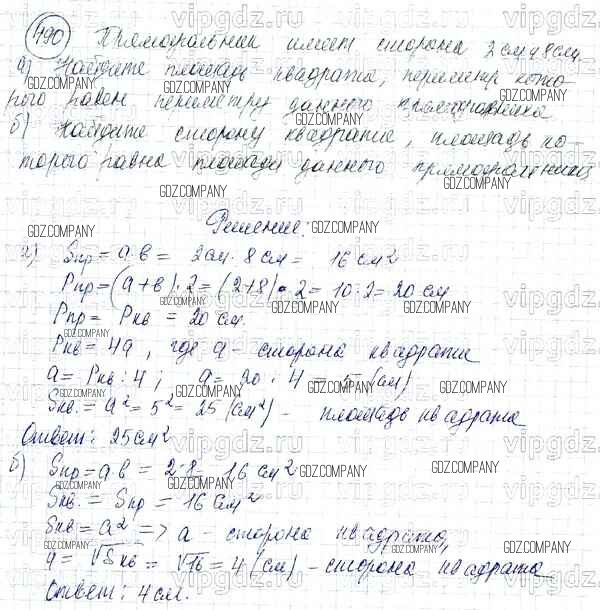 490 Прямоугольник имеет стороны 2 см и 8 см.
а) Найдите площадь квадрата, периметр кото-
рого равен периметру данного прямоугольника.
б) Найдите сторону квадрата, площадь ко-
торого равна площади данного прямоугольника
Решение:
а) Sпр = a·b = 2см·8см = 16 см²
Pпр = (a+b)·2 = (2+8)·2 = 10·2 = 20 см
Pпр = Pкв = 20 см.
Pкв = 4a, где a - сторона квадрата
a = Pкв : 4; a = 20 : 4 = 5 (см)
Sкв. = a² = 5² = 25 (см²) - площадь квадрата
Ответ: 25 см²
б) Sпр = a b = 2·8 = 16 см²
Sкв. = Sпр = 16 см²
Sкв = a² => a - сторона квадрата,
a = √Sкв = √16 = 4 (см) - сторона квадрата
Ответ: 4 см.